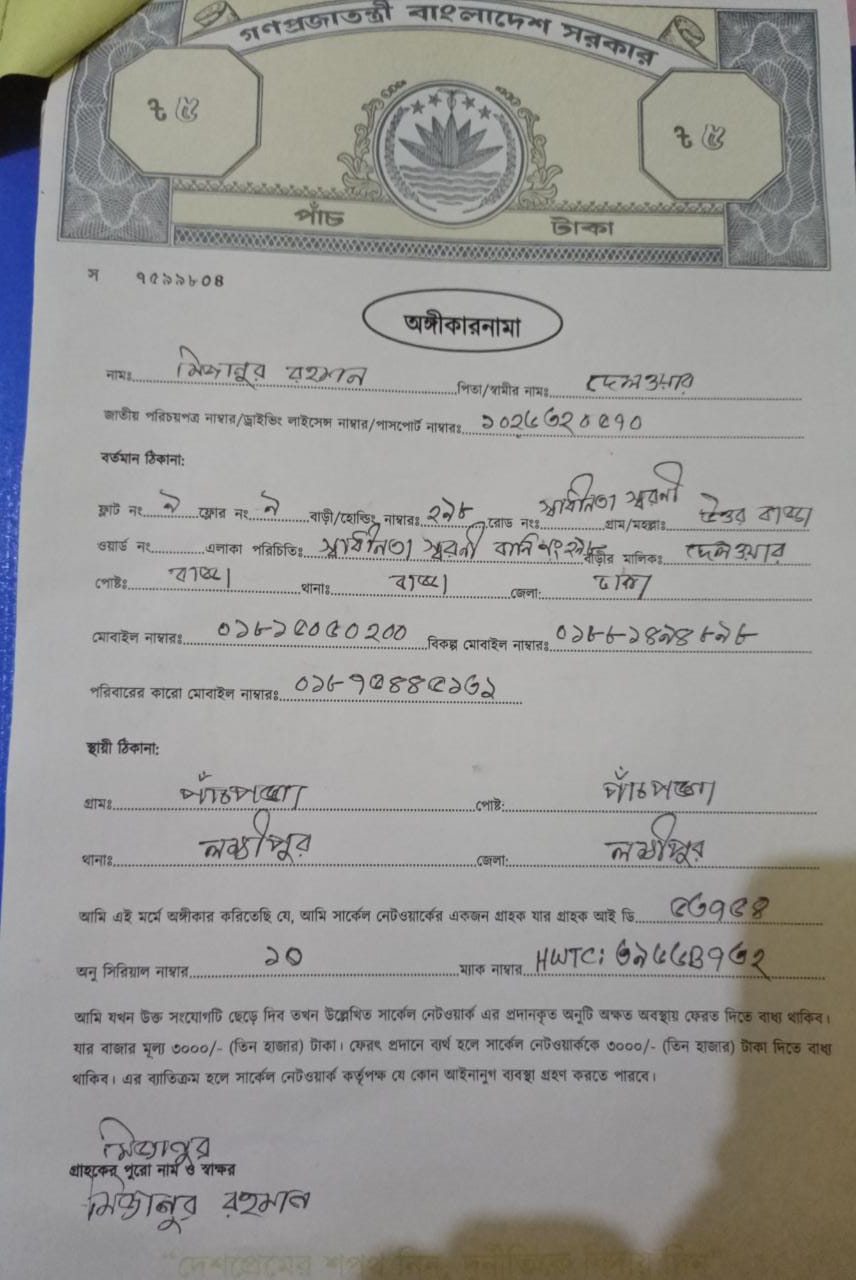 গণপ্রজাতন্ত্রী বাংলাদেশ সরকার
৳ ৫ ৳ ৫
পাঁচ টাকা
স ৭৫৯৯৮০৪
অঙ্গীকারনামা
নামঃ মিজানুর রহমান পিতা/স্বামীর নামঃ দেলওয়ার
জাতীয় পরিচয়পত্র নাম্বার/ড্রাইভিং লাইসেন্স নাম্বার/পাসপোর্ট নাম্বারঃ
বর্তমান ঠিকানা:
ফ্লাট নং ৯ ফ্লোর নং ৯ বাড়ী/হোল্ডিং নাম্বারঃ ২৯৮ রোড নংঃ স্বাধীনতা স্বরনী গ্রাম/মহল্লাঃ উত্তর বাড্ডা
ওয়ার্ড নং এলাকা পরিচিতিঃ স্বাধীনতা স্বরনী বাসা নং ২৯৮ বাড়ীর মালিকঃ দেলওয়ার
পোষ্টঃ বাড্ডা থানাঃ বাড্ডা জেলা: ঢাকা
মোবাইল নাম্বারঃ ০১৮১৫০৫০২০০ বিকল্প মোবাইল নাম্বারঃ ০১৮৮১৪৯৪৮৯৮
পরিবারের কারো মোবাইল নাম্বারঃ ০১৮৭৫৪৪৫১৬১
স্থায়ী ঠিকানা:
গ্রামঃ পাঁচপাড়া পোষ্ট: পাঁচপাড়া
থানাঃ লক্ষীপুর জেলা: লক্ষীপুর
আমি এই মর্মে অঙ্গীকার করিতেছি যে, আমি সার্কেল নেটওয়ার্কের একজন গ্রাহক যার গ্রাহক আই ডি ৫৩৭৫৪
অনু সিরিয়াল নাম্বার ১০ ম্যাক নাম্বার HWTC:
আমি যখন উক্ত সংযোগটি ছেড়ে দিব তখন উল্লেখিত সার্কেল নেটওয়ার্ক এর প্রদানকৃত অনুটি অক্ষত অবস্থায় ফেরত দিতে বাধ্য থাকিব।
যার বাজার মূল্য ৩০০০/- (তিন হাজার) টাকা। ফেরৎ প্রদানে ব্যর্থ হলে সার্কেল নেটওয়ার্ককে ৩০০০/- (তিন হাজার) টাকা দিতে বাধ্য
থাকিব। এর ব্যতিক্রম হলে সার্কেল নেটওয়ার্ক কর্তৃপক্ষ যে কোন আইনানুগ ব্যবস্থা গ্রহণ করতে পারবে।
মিজানুর
গ্রাহকের পুরো নাম ও স্বাক্ষর
মিজানুর রহমান
"দেশপ্রেমের শপথ নিন, দুর্নীতিকে বিদায় দিন"